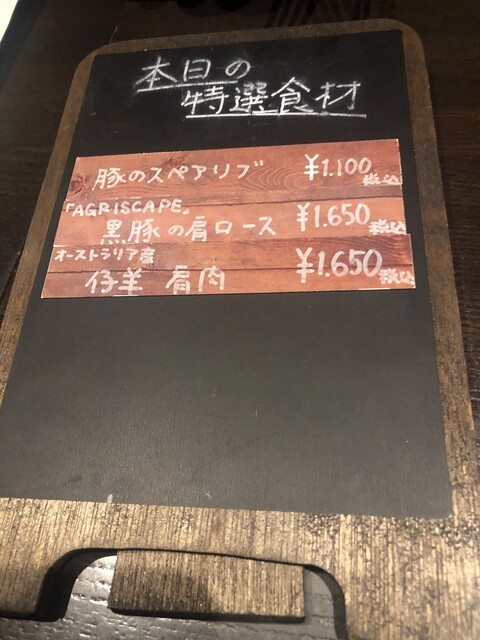 本日の
特選食材
豚のスペアリブ ¥1.100税込
「AGRISCAPE」
黒豚の肩ロース ¥1.650税込
オーストラリア産
仔羊 肩肉 ¥1.650税込